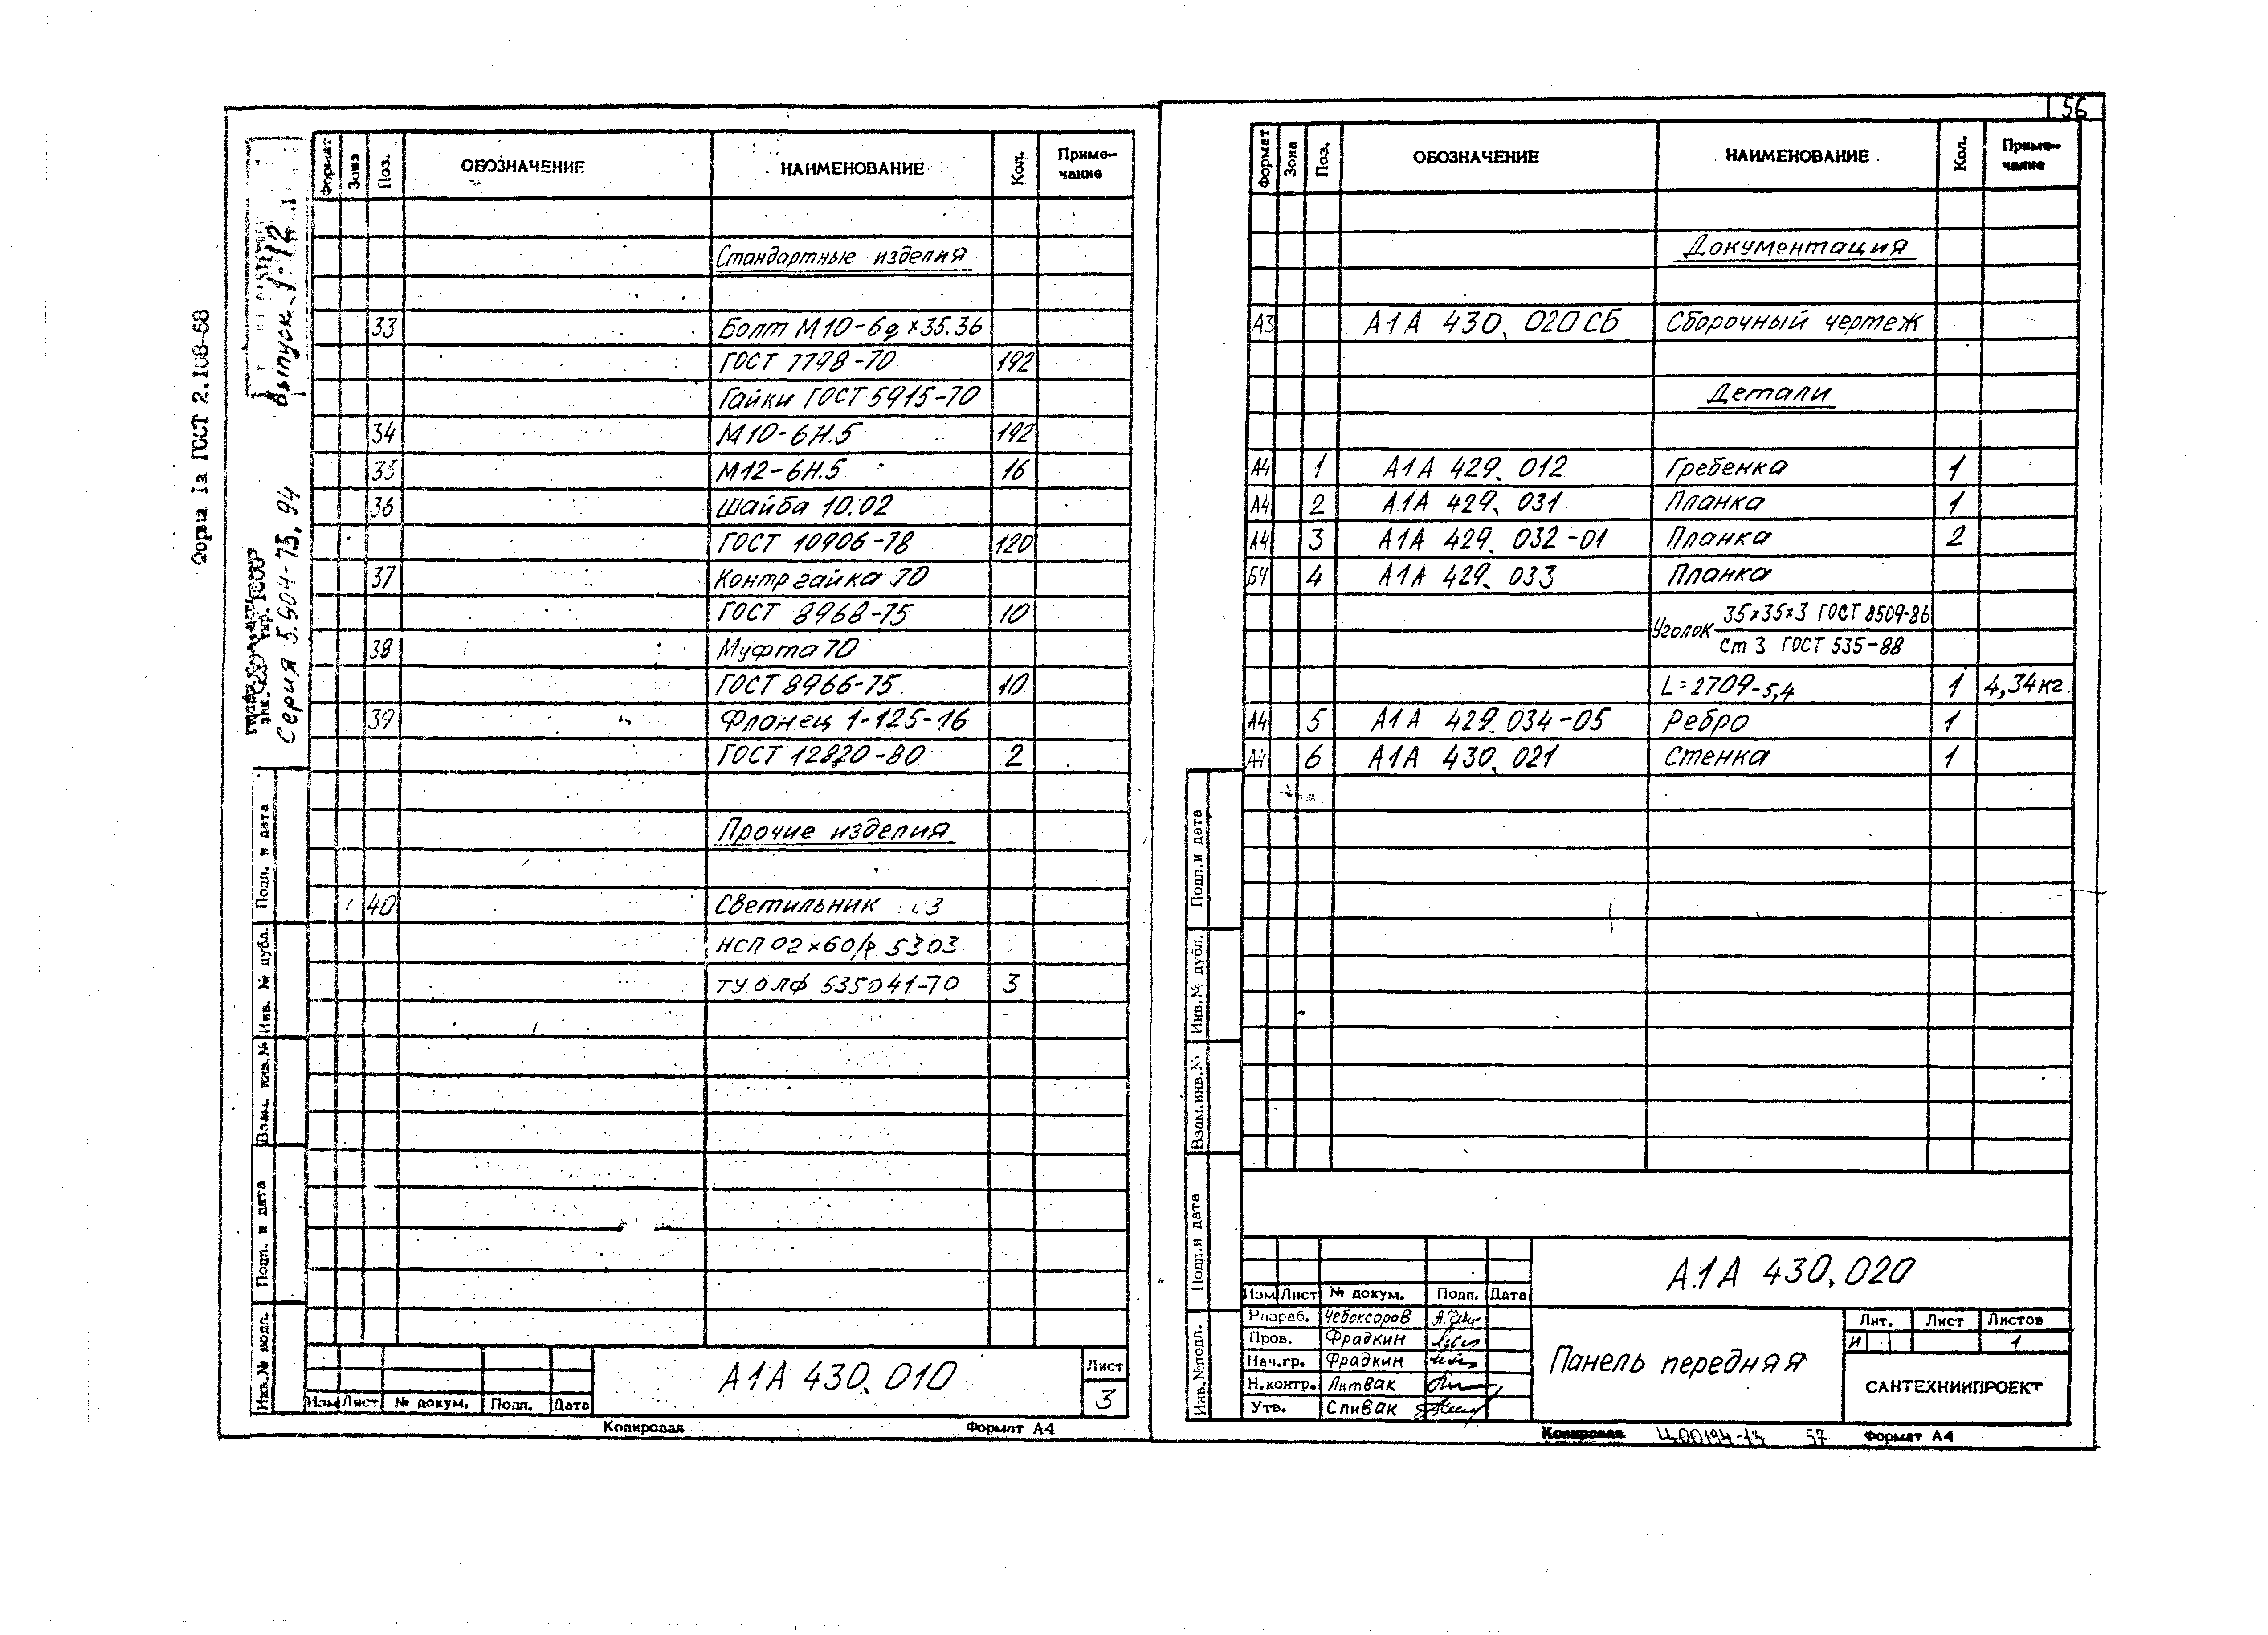 Форма 1а ГОСТ 2.108-68
Выпуск 1-12
Серия 5.904-75.94
Формат Зона Поз. ОБОЗНАЧЕНИЕ НАИМЕНОВАНИЕ Кол. Приме-
чание
Стандартные изделия
33 Болт М10-6g×35.36
ГОСТ 7798-70 192
Гайки ГОСТ 5915-70
34 М10-6Н.5 192
35 М12-6Н.5 16
36 Шайба 10.02
ГОСТ 10906-78 120
37 Контргайка 70
ГОСТ 8968-75 10
38 Муфта 70
ГОСТ 8966-75 10
39 Фланец 1-125-16
ГОСТ 12820-80 2
Прочие изделия
40 Светильник
НСП 02×60/р 5303
ТУ ОЛФ 535041-70 3
Подп. и дата
Инв. № дубл.
Взам. инв. №
Подп. и дата
Инв. № подл.
Изм Лист № докум. Подп. Дата
А1А 430.010
Лист
3
Копировал Формат А4
56
Формат Зона Поз. ОБОЗНАЧЕНИЕ НАИМЕНОВАНИЕ Кол. Приме-
чание
Документация
А3 А1А 430.020СБ Сборочный чертеж
Детали
А4 1 А1А 429.012 Гребенка 1
А4 2 А1А 429.031 Планка 1
А4 3 А1А 429.032-01 Планка 2
БЧ 4 А1А 429.033 Планка
Уголок 35×35×3 ГОСТ 8509-86
Ст 3 ГОСТ 535-88
L=2709-5,4 1 4,34кг.
А4 5 А1А 429.034-05 Ребро 1
А4 6 А1А 430.021 Стенка 1
Подп. и дата
Инв. № дубл.
Взам. инв. №
Подп. и дата
Инв. № подл.
А1А 430.020
Изм Лист № докум. Подп. Дата
Разраб. Чебоксаров
Пров. Фрадкин
Нач.гр. Фрадкин
Н.контр. Литвак
Утв. Спивак
Панель передняя
Лит. Лист Листов
И 1
САНТЕХНИИПРОЕКТ
Копировал Ц00194-13 57 Формат А4